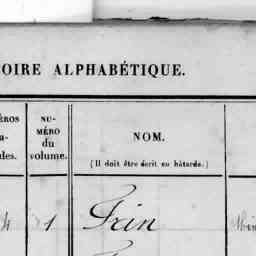 OIRE ALPHABÉTIQUE.
NU-
MÉRO
du
volume.
NOM.
(Il doit être écrit en bâtarde.)
1 Frin